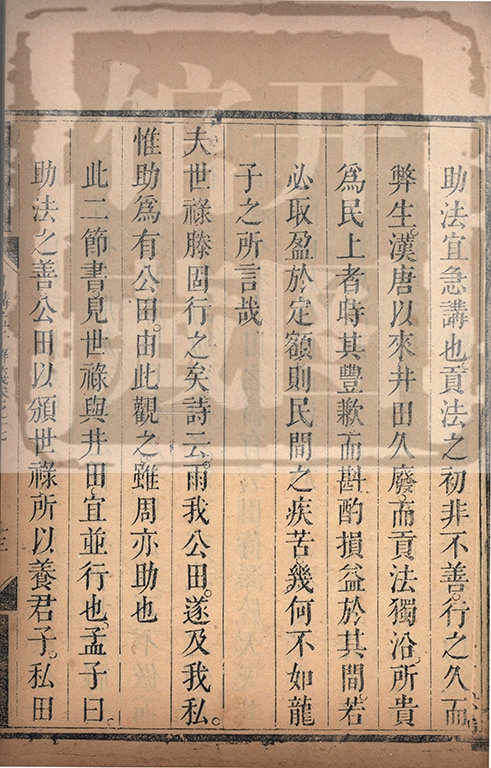 助法宜急講也貢法之初非不善行之久而
弊生漢唐以來井田久廢而貢法獨沿所貴
爲民上者時其豐歉而斟酌損益於其間若
必取盈於定額則民間之疾苦幾何不如龍
子之所言哉
夫世祿滕固行之矣詩云雨我公田遂及我私
惟助爲有公田由此觀之雖周亦助也
此二節書見世祿與井田宜並行也孟子曰
助法之善公田以頒世祿所以養君子私田